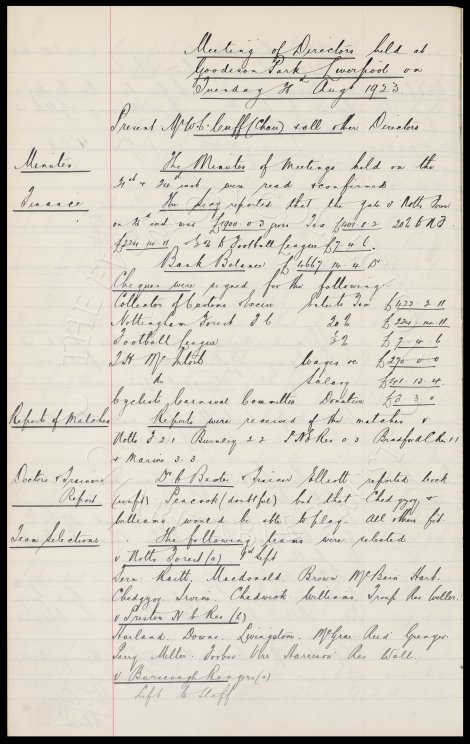 Meeting of Directors held at
Goodison Park, Liverpool on
Tuesday 28th Augt 1923
Present Mr W.C. Cuff (Chair) & all other Directors
Minutes
The Minutes of Meetings held on the
21st & inst were read & confirmed
Finance
The Secy reported that the gate v Notts Forest
on inst was £1900.0.3 gross Tax £401.1.2 20% to N.F.
£224.14.11 & ½% to Football League £7.4.6.
Bank Balance £4667.14.4 Dr
Cheques were signed for the following
Collector of Customs Excise Enterts Tax £422.2.11
Nottingham Forest F.C 20% £224.14.11
Football League ½% £7.4.6
T.H. McIntosh Wages &c £270.0.0
do Salary £101.13.4
Cyclists Carnival Committee Donation £3.3.0
Report of Matches
Reports were received of the matches v
Notts F 2.1 Burnley 2.2 P.N.E Res 0.3 Bradford C. Res 1.1
& Marine 3.3.
Doctors & Trainers
Report
Dr C Baxter & Trainer Elliott reported Cock
(unfit) Peacock (doubtful) but that Chedgzoy &
Williams would be able to play. All others fit.
Team Selections
The following teams were selected
v Notts Forest (a) Left
Fern Raitt, Macdonald. Brown McBain Hart.
Chedgzoy. Irvine. Chadwick Williams. Troup. Res Weller.
v Preston N.E Res (h)
Harland. Downs. Livingstone. McGrae Reid Grenyer
Parry. Miller. Forbes Virr Harrison Res Wall.
v Burscough Rangers (a)
Left to Staff